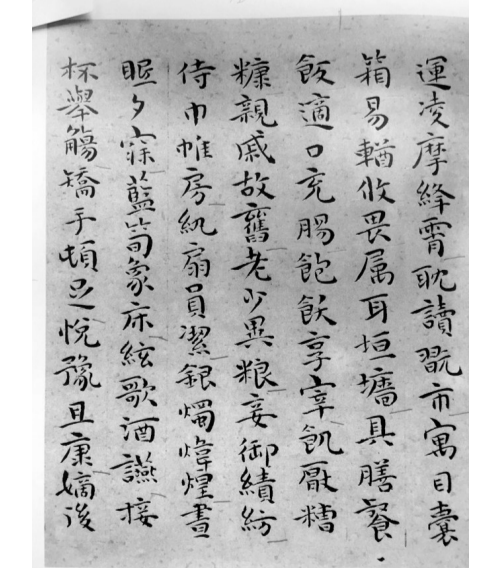 運凌摩絳霄耽讀翫市寓目囊
箱易輶攸畏属耳垣墻具膳餐
飯適口充腸飽飫享宰飢厭糟
糠親戚故舊老少異粮妾御績紡
侍巾帷房紈扇員潔銀燭煒煌晝
眠夕寐藍筍象床絃歌酒讌接
杯舉觴矯手頓足悅豫且康嫡後